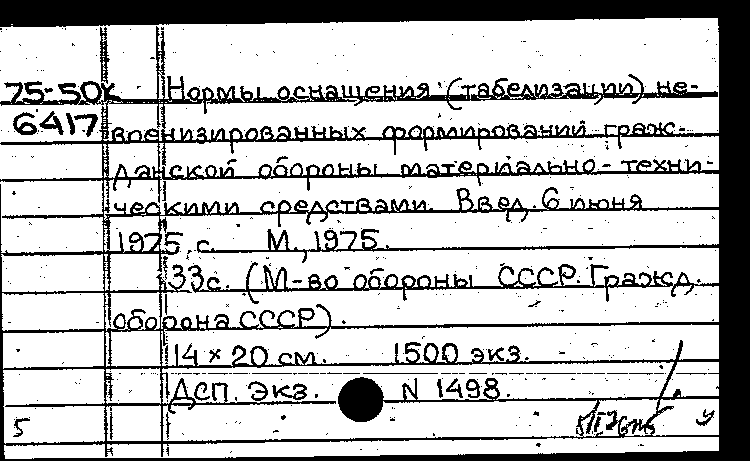 75-50к Нормы оснащения (табелизации) не-
6417 военизированных формирований граж-
данской обороны материально-техни-
ческими средствами. Введ. 6 июня
1975. с. М., 1975.
33с. (М-во обороны СССР. Гражд.
оборона СССР).
14 × 20 см. 1500 экз.
ДСП. Экз. N 1498.
5